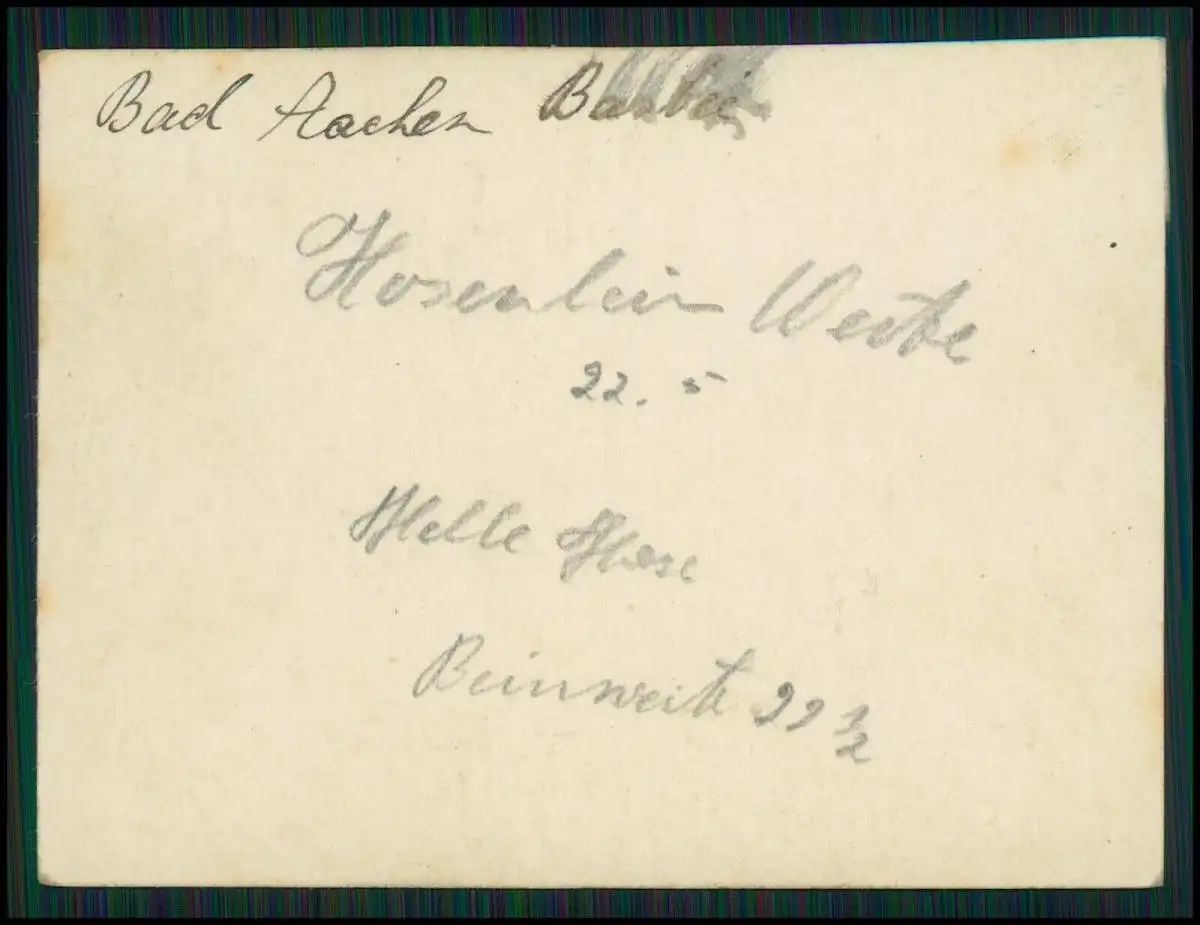 Bad Aachen
Hosenbein Weite
22.5
Helle Hose
Beinweite 22 1/2